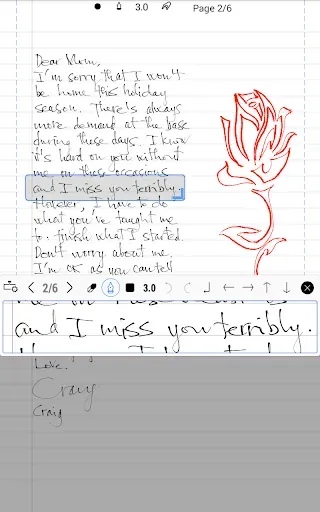 3.0
Page 2/6
Dear Mum,
I'm sorry that I won't
be home this holiday
season. There's always
more demand at the base
during these days. I know
it's hard on you without
me on these occasions
and I miss you terribly.
However, I have to do
what you've taught me
to. finish what I started.
Don't worry about me.
I'm OK as you can tell
2/6
3.0
and I miss you terribly.
Love.
Craig
Craig